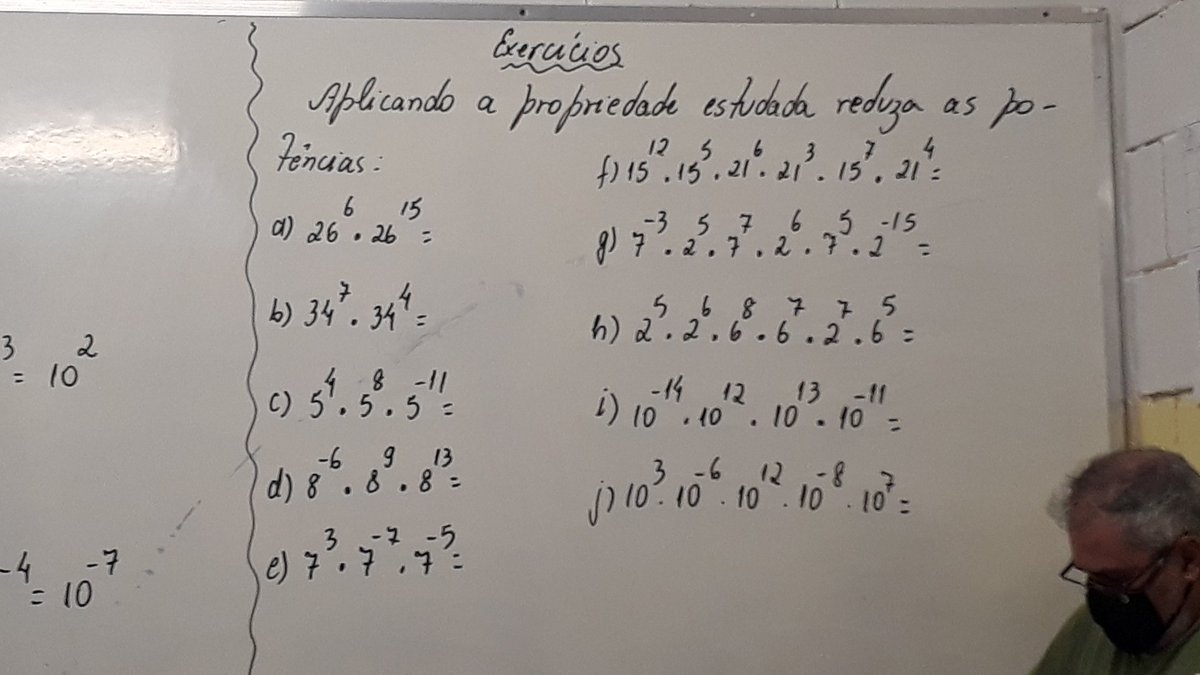 Exercícios
Aplicando a propriedade estudada reduza as po-
tências:
a) 26⁶ . 26¹⁵ =
b) 34⁷ . 34⁴ =
c) 5⁴ . 5⁸ . 5⁻¹¹ =
d) 8⁻⁶ . 8⁹ . 8¹³ =
e) 7³ . 7⁻⁷ . 7⁻⁵ =
f) 15¹² . 15⁵ . 21⁶ . 21³ . 15⁷ . 21⁴ =
g) 7⁻³ . 2⁵ . 7⁷ . 2⁶ . 7⁵ . 2⁻¹⁵ =
h) 2⁵ . 2⁶ . 6⁸ . 6⁷ . 2⁷ . 6⁵ =
i) 10⁻¹⁴ . 10¹² . 10¹³ . 10⁻¹¹ =
j) 10³ . 10⁻⁶ . 10¹² . 10⁻⁸ . 10⁷ =
³ = 10²
⁻⁴ = 10⁻⁷